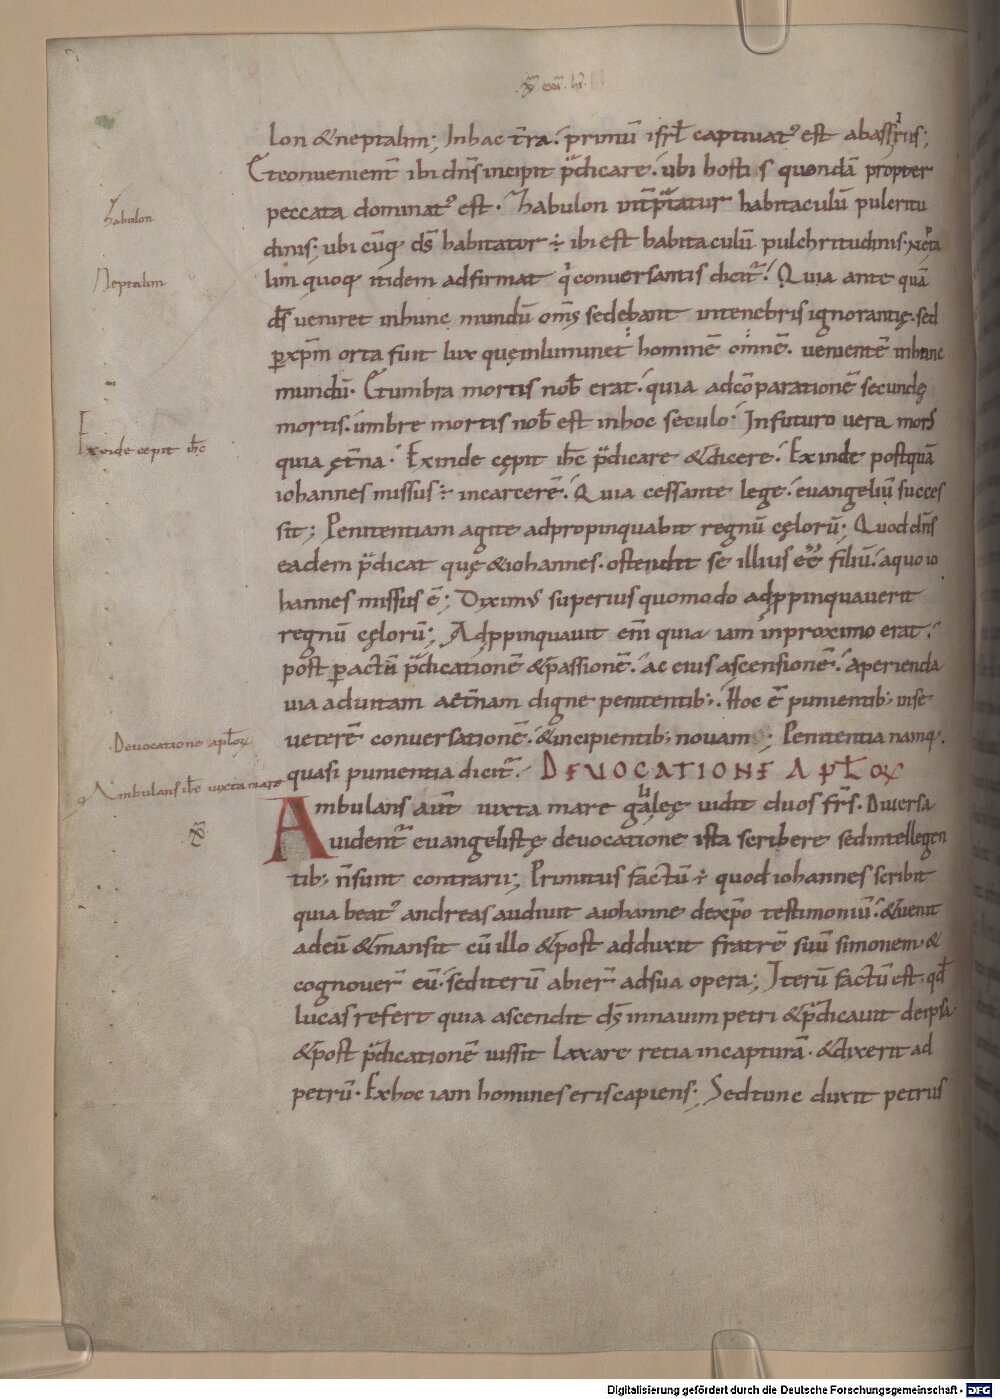 lon &neptalim; Inhac t̄ra. primū isrƚ captiuat᷒ est abassiriis;
Etconuenient̄ ibi dn̄s incipit p̄dicare. ubi hostis quondā propter
Zabulon
peccata dominat᷒ est. Zabulon int̄p̄tatur habitaculū pulcritu
dinis; ubi cūq; ds̄ habitator ÷ ibi est habitaculū pulchritudinis. Nepta
Neptalim
lim quoq; itidem adfirmat q̄ conuersantis dicit̄. Quia ante quā
ds̄ ueniret inhunc mundū om̄s sedebant intenebris ignorantię. sed
p̲xp̄m orta fuit lux quęinluminet hominē om̄nē. uenientē inhunc
mundū. Etumbra mortis nob̄ erat. quia adcōparationē secundę
mortis. umbre mortis nob̄ est inhoc seculo. Infuturo uera mors
Exinde cepit ih̄c
quia ęt̄na. Exinde cępit ih̄c p̄dicare &dicere. Exinde postquā
iohannes missus ÷ incarcerē. Quia cessante lege. euangeliū succes
sit; Penitentiam agite adpropinquabit regnū cęlorū. Quod dn̄s
eadem p̄dicat quę &iohannes. ostendit se illius eē̄ filiū. aquo io
hannes missus ē; Diximus superius quomodo adp̲pinquauerit
regnū cęlorū; Adp̲pinquauit em̄ quia iam inproximo erat.
post p̲actū p̄dicationē &passionē. ac eius ascensionē. aperienda
uia aduitam aet̄nam digne penitentib;. Hoc ē punientib; inse
Deuocatione apƚoꝝ
ueterē conuersationē. &incipientib; nouam; Penitentia namq;
Ambulans ih̄c iuxta mare
quasi punientia dicit̄. DEUOCATIONE APƚOꝝ
Ambulans aut̄ iuxta mare galileę uidit duos fr̄s. Diuersa
uident̄ euangelistę deuocatione ista scribere sedintellegen
tib; n̄sunt contrarii; Primitus factū ÷ quod iohannes scribit
quia beat᷒ andreas audiuit aiohanne dexp̄o testimoniū. &uenit
adeū &mansit cū illo &post adduxit fratrē suū simonem. &
cognouer̄ eū. seditерū abier̄ adsua opera; Iterū factū est. qđ
lucas refert quia ascendit ds̄ innauim petri &p̄dicauit deipsa.
&post p̄dicationē iussit laxare retia incapturā. &dixerit ad
petrū. Exhoc iam homines eris capiens; Sedtunc duxit petrus
Digitalisierung gefördert durch die Deutsche Forschungsgemeinschaft - DFG